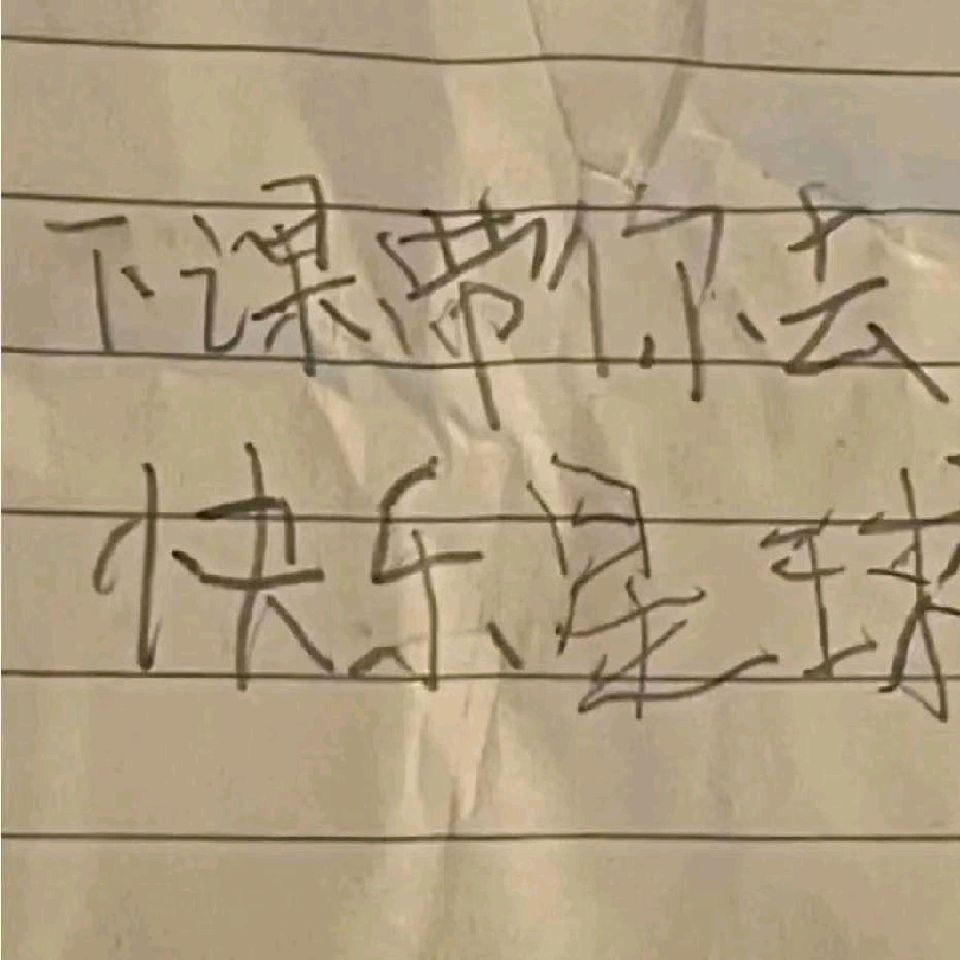 下课带你去
快乐星球